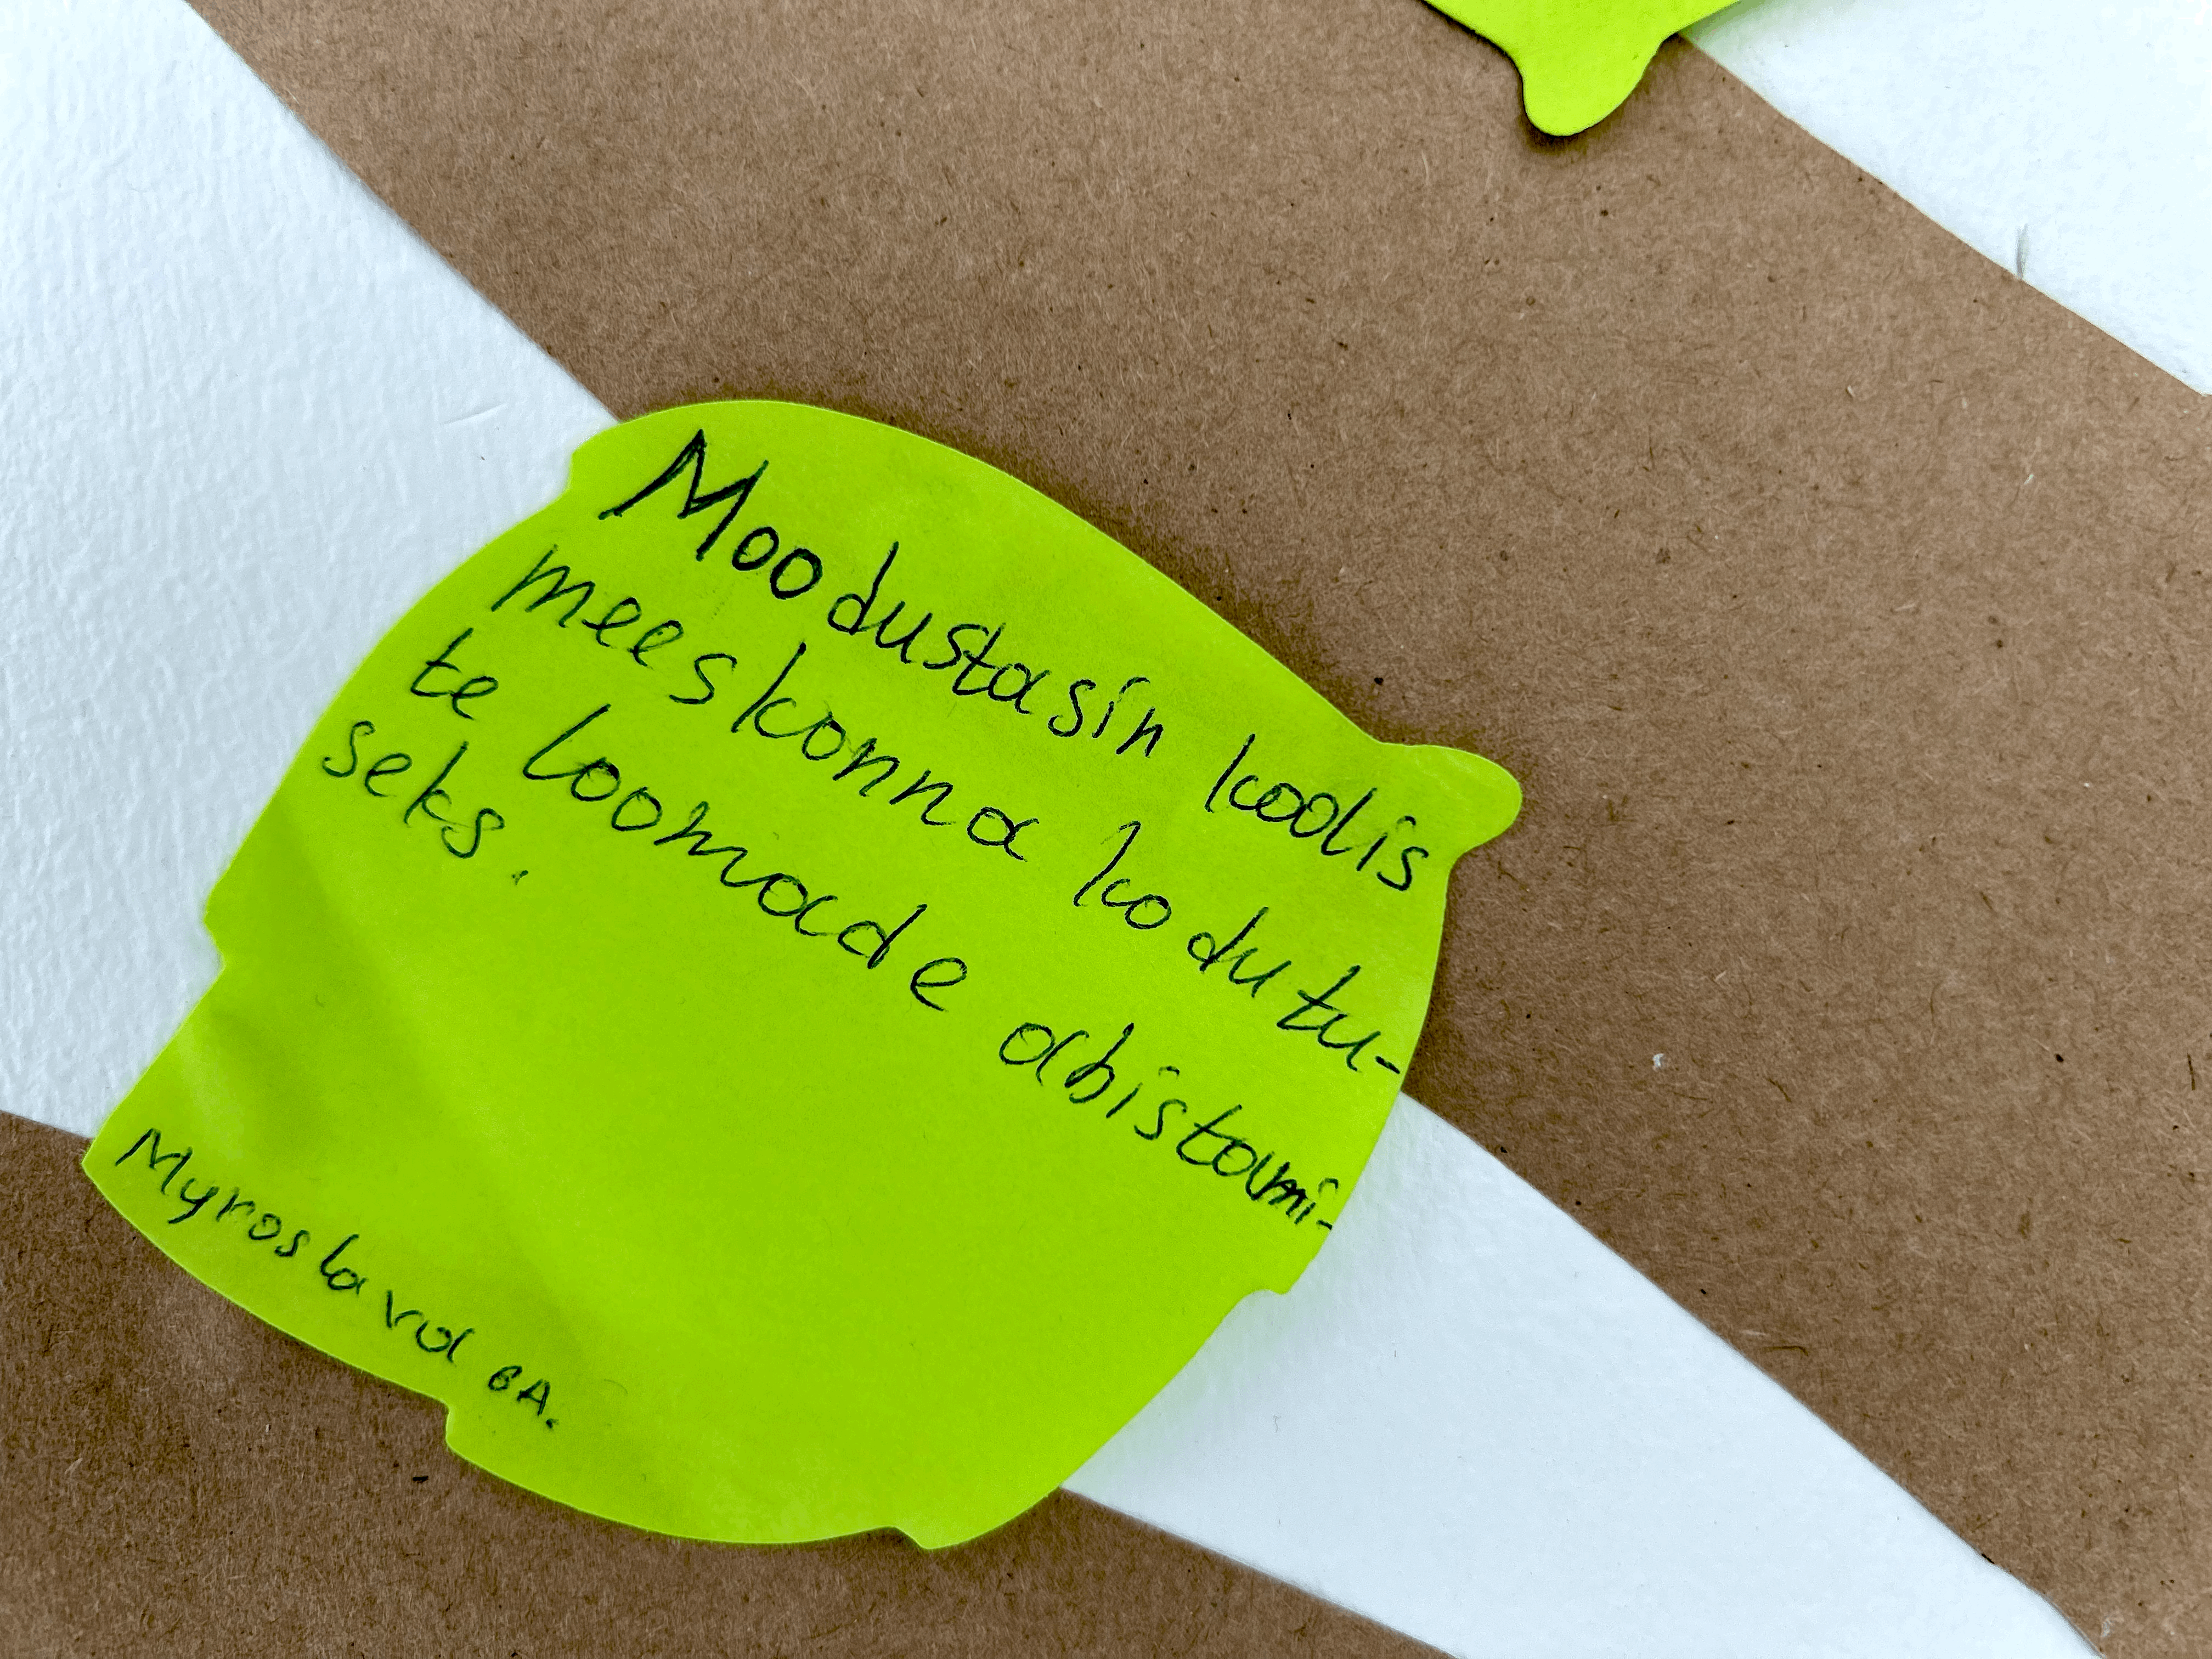 Moodustasin koolis
meeskonna kodutu-
te loomade abistami-
seks.
Myroslava 6A.